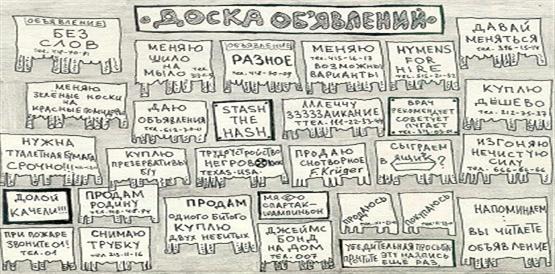 ДОСКА ОБЪЯВЛЕНИЙ
ОБЪЯВЛЕНИЕ
БЕЗ
СЛОВ
МЕНЯЮ
ШИЛО
НА
МЫЛО
ОБЪЯВЛЕНИЕ
РАЗНОЕ
МЕНЯЮ
ВОЗМОЖНЫ
ВАРИАНТЫ
HYMENS
FOR
HIRE
ДАВАЙ
МЕНЯТЬСЯ
МЕНЯЮ
ЗЕЛЁНЫЕ НОСКИ
НА
КРАСНЫЕ
ДАЮ
ОБЪЯВЛЕНИЯ
STASH
THE
HASH
ЛЛЛЕЧЧУ
ЗЗЗЗЗАИКАНИЕ
ВРАЧ
РЕКОМЕНДУЕТ
СОВЕТУЕТ
ПУГАЕТ
КУПЛЮ
ДЁШЕВО
НУЖНА
ТУАЛЕТНАЯ БУМАГА
СРОЧНО!!!
КУПЛЮ
ПРЕЗЕРВАТИВЫ
Б/У
ТРУДОУСТРОЙСТВО
НЕГРОВ
TEXAS-USA.
ПРОДАЮ
СНОТВОРНОЕ
F.Krüger
СЫГРАЕМ
В
ЯЩИК?
ИЗГОНЯЮ
НЕЧИСТУЮ
СИЛУ
тел. 666-66-66
ДОЛОЙ
КАЧЕЛИ!!!
ПРОДАМ
РОДИНУ
ПРОДАМ
ОДНОГО БИТОГО
КУПЛЮ
ДВУХ НЕБИТЫХ
СПАРТАК-
ШАМПИНЬОН
ПРОДАЮСЬ
ПОКУПАЮСЬ
НАПОМИНАЕМ:
ВЫ ЧИТАЕТЕ
ОБЪЯВЛЕНИЕ
ПРИ ПОЖАРЕ
ЗВОНИТЕ 01!
СНИМАЮ
ТРУБКУ
ДЖЕЙМС
БОНД
НА ДОМ
ТЕЛ. 007
УБЕДИТЕЛЬНАЯ ПРОСЬБА
ПРОЧТИТЕ ЭТУ НАДПИСЬ
ЕЩЁ РАЗ.